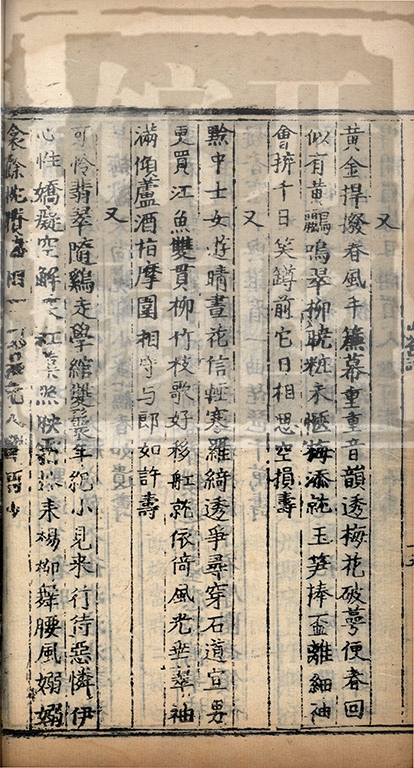 又
黄金捍撥春風手簾幕重重音韻透梅花破萼便春回
似有黄鸝鳴翠柳曉粧未愜梅添就玉笋捧盃離細袖
會拚千日笑罇前它日相思空損壽
又
黔中士女遊晴晝花信輕寒羅綺透爭尋穿石道宜男
更買江魚雙貫柳竹枝歌好移舡就依倚風光垂翠袖
滿傾蘆酒指摩圍相守与郎如許壽
又
可怜翡翠隨鷄走學綰雙鬟年紀小見來行待惡憐伊
心性嬌癡空解紅照映楊柳舞腰風嫋嫋
衾餘枕相